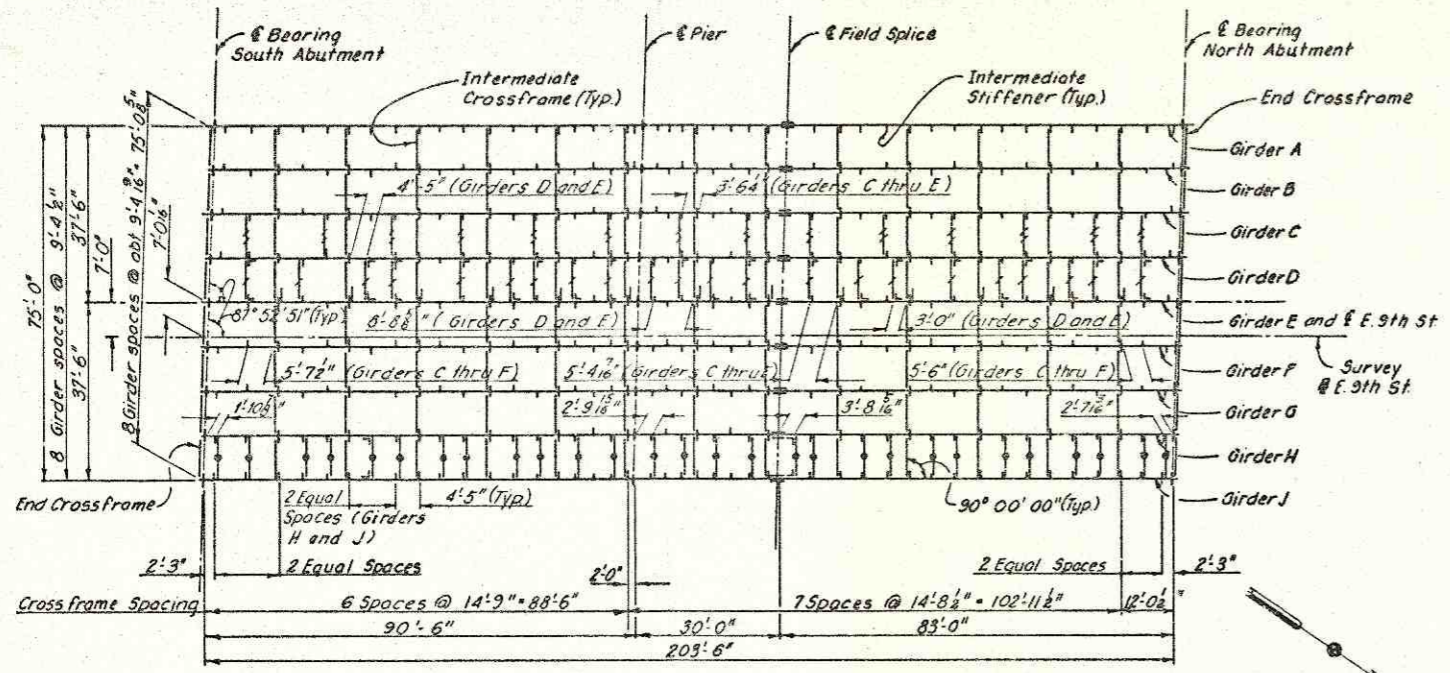 ℄ Bearing
South Abutment
℄ Pier
℄ Field Splice
℄ Bearing
North Abutment
Intermediate
Crossframe (Typ.)
Intermediate
Stiffener (Typ.)
End Crossframe
Girder A
Girder B
Girder C
Girder D
Girder E and ℄ E. 9th St.
Girder F
Girder G
Girder H
Girder J
Survey
℄ E. 9th St.
75'-0"
8 Girder spaces @ 9'-4½"
37'-6"
37'-6"
7'-0"
8 Girder spaces @ abt 9'-4 9/16" = 75'-0 5/8"
7'-0 1/16"
4'-5" (Girders D and E)
3'-6¼" (Girders C thru E)
87° 52' 51" (Typ.)
8'-8⅛" (Girders D and E)
3'-0" (Girders D and E)
5'-7½" (Girders C thru F)
5'-4 7/16" (Girders C thru E)
5'-6" (Girders C thru F)
2'-9 15/16"
3'-8 5/16"
2'-7 3/16"
End Crossframe
2 Equal
Spaces (Girders
H and J)
4'-5" (Typ.)
90° 00' 00" (Typ.)
2'-3"
2 Equal Spaces
2'-0"
2 Equal Spaces
2'-3"
Crossframe Spacing
6 Spaces @ 14'-9" = 88'-6"
7 Spaces @ 14'-8½" = 102'-11½"
12'-0½"
90'-6"
30'-0"
83'-0"
203'-6"